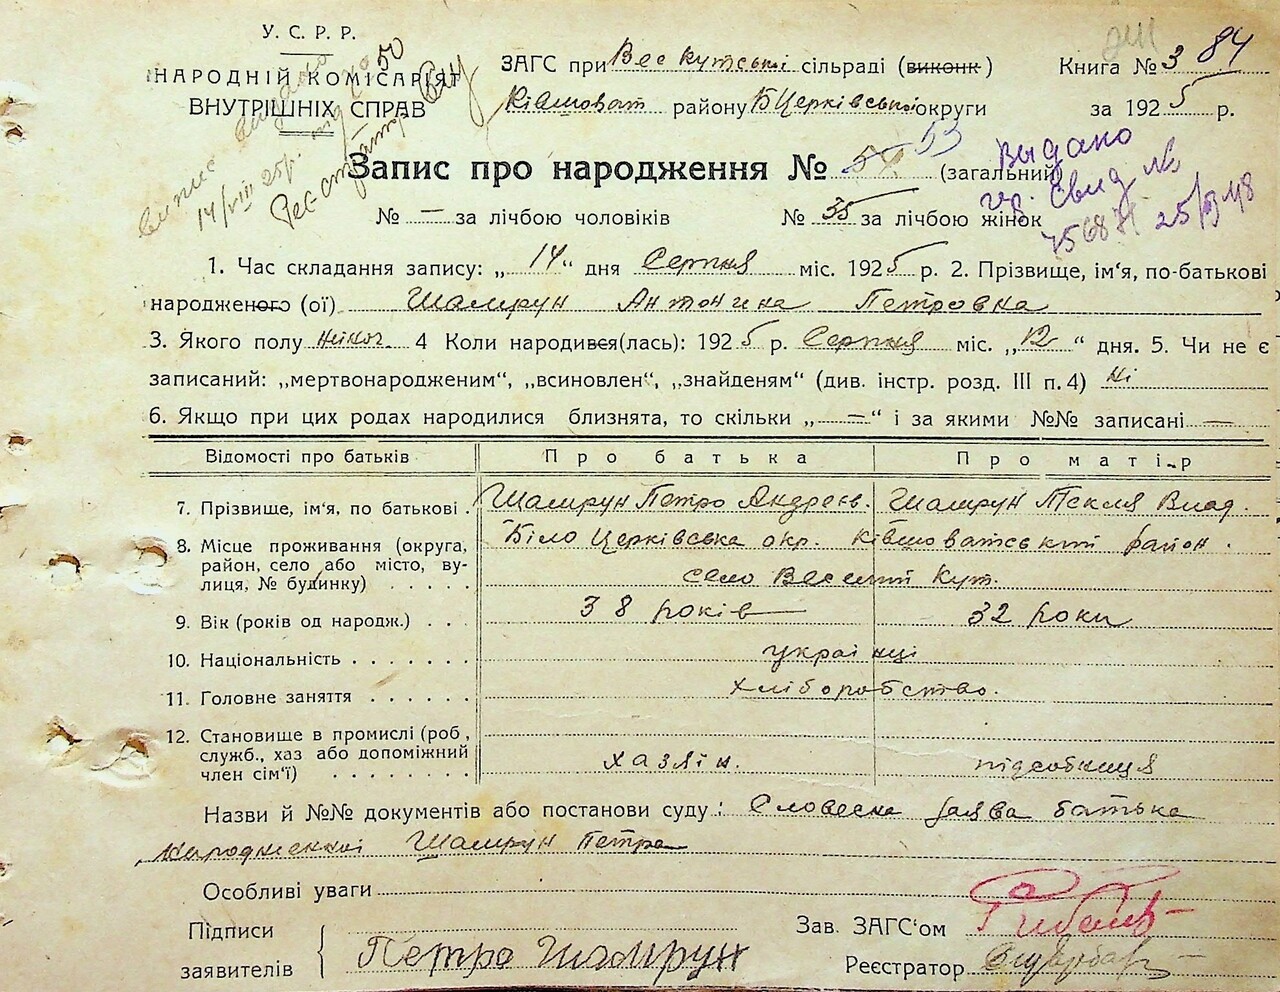 У. С. Р. Р.
НАРОДНІЙ КОМІСАРІЯТ
ВНУТРІШНІХ СПРАВ
ЗАГС при Вес Кутській сільраді (виконк)
Ківшоват району БЦерківської округи
Книга № 3 84
за 1925 р.
Выдано
Запис про народження № 53 (загальний)
№ — за лічбою чоловіків № 35 за лічбою жінок
1. Час складання запису: „14“ дня Серпня міс. 1925 р. 2. Прізвище, ім'я, по-батькові
народженого (ої) Шамрун Антонина Петровна
3. Якого полу жіноч. 4 Коли народився(лась): 1925 р. Серпня міс. „12“ дня. 5. Чи не є
записаний: „мертвонародженим“, „всиновлен“, „знайденям“ (див. інстр. розд. III п. 4) ні
6. Якщо при цих родах народилися близнята, то скільки „=“ і за якими №№ записані —
Відомості про батьків Про батька Про матір
7. Прізвище, ім'я, по батькові . Шамрун Петро Андреев. Шамрун Текля Влад.
8. Місце проживання (округа, район, село або місто, вулиця, № будинку) . . . . Біло Церківська окр. Ківшоватський район.
село Веселий Кут.
9. Вік (років од народж.) . . . 38 років 32 роки
10. Національність . . . . . . . українці
11. Головне заняття . . . . . . хліборобство.
12. Становище в промислі (роб, служб., хаз або допоміжний член сім'ї) . . . . . . . . хазяїн. підсобниця
Назви й №№ документів або постанови суду: Словесна заява батька
народженної Шамрун Петра
Особливі уваги
Підписи заявителів Петро Шамрун
Зав. ЗАГС'ом
Реєстратор